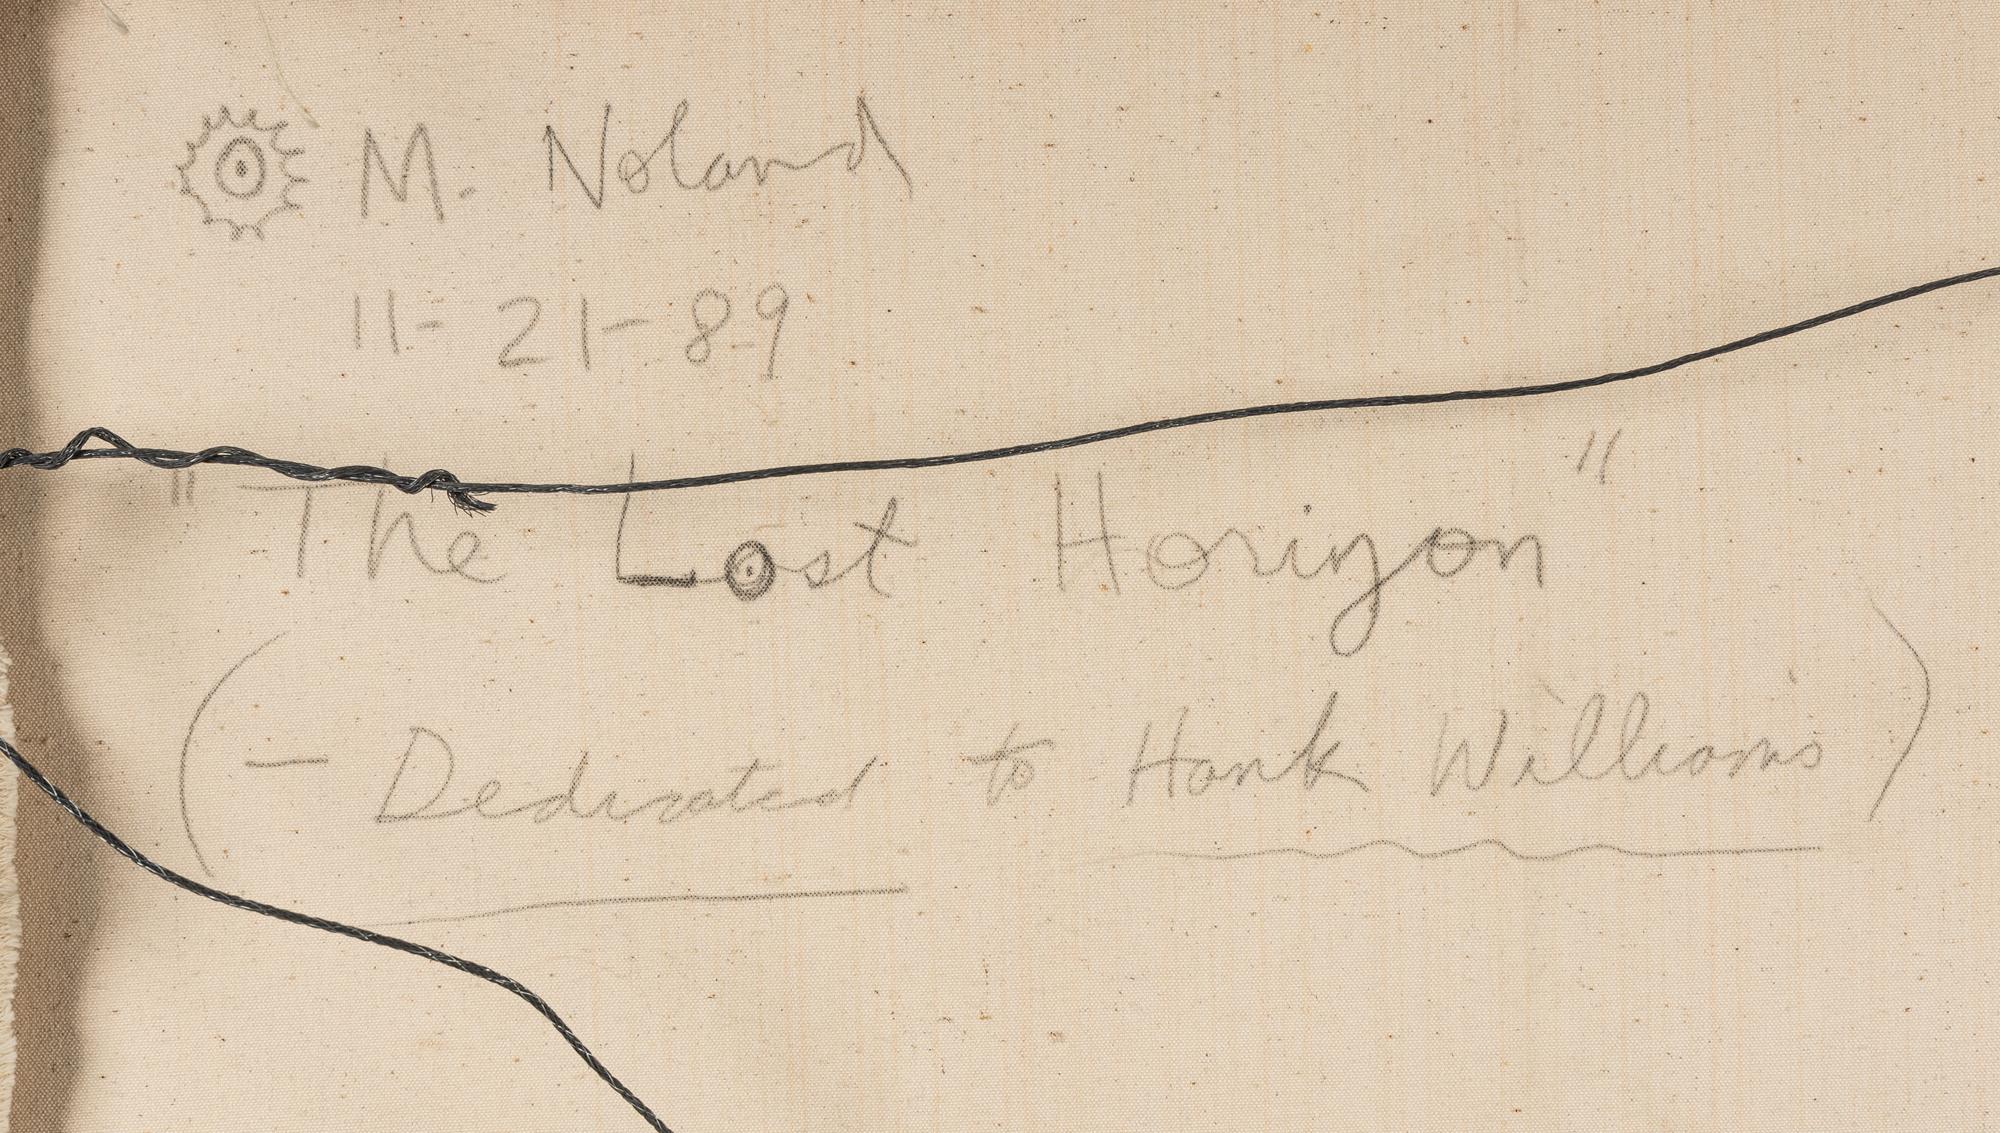 M. Noland
11-21-89
"The Lost Horizon"
(- Dedicated to Hank Williams)